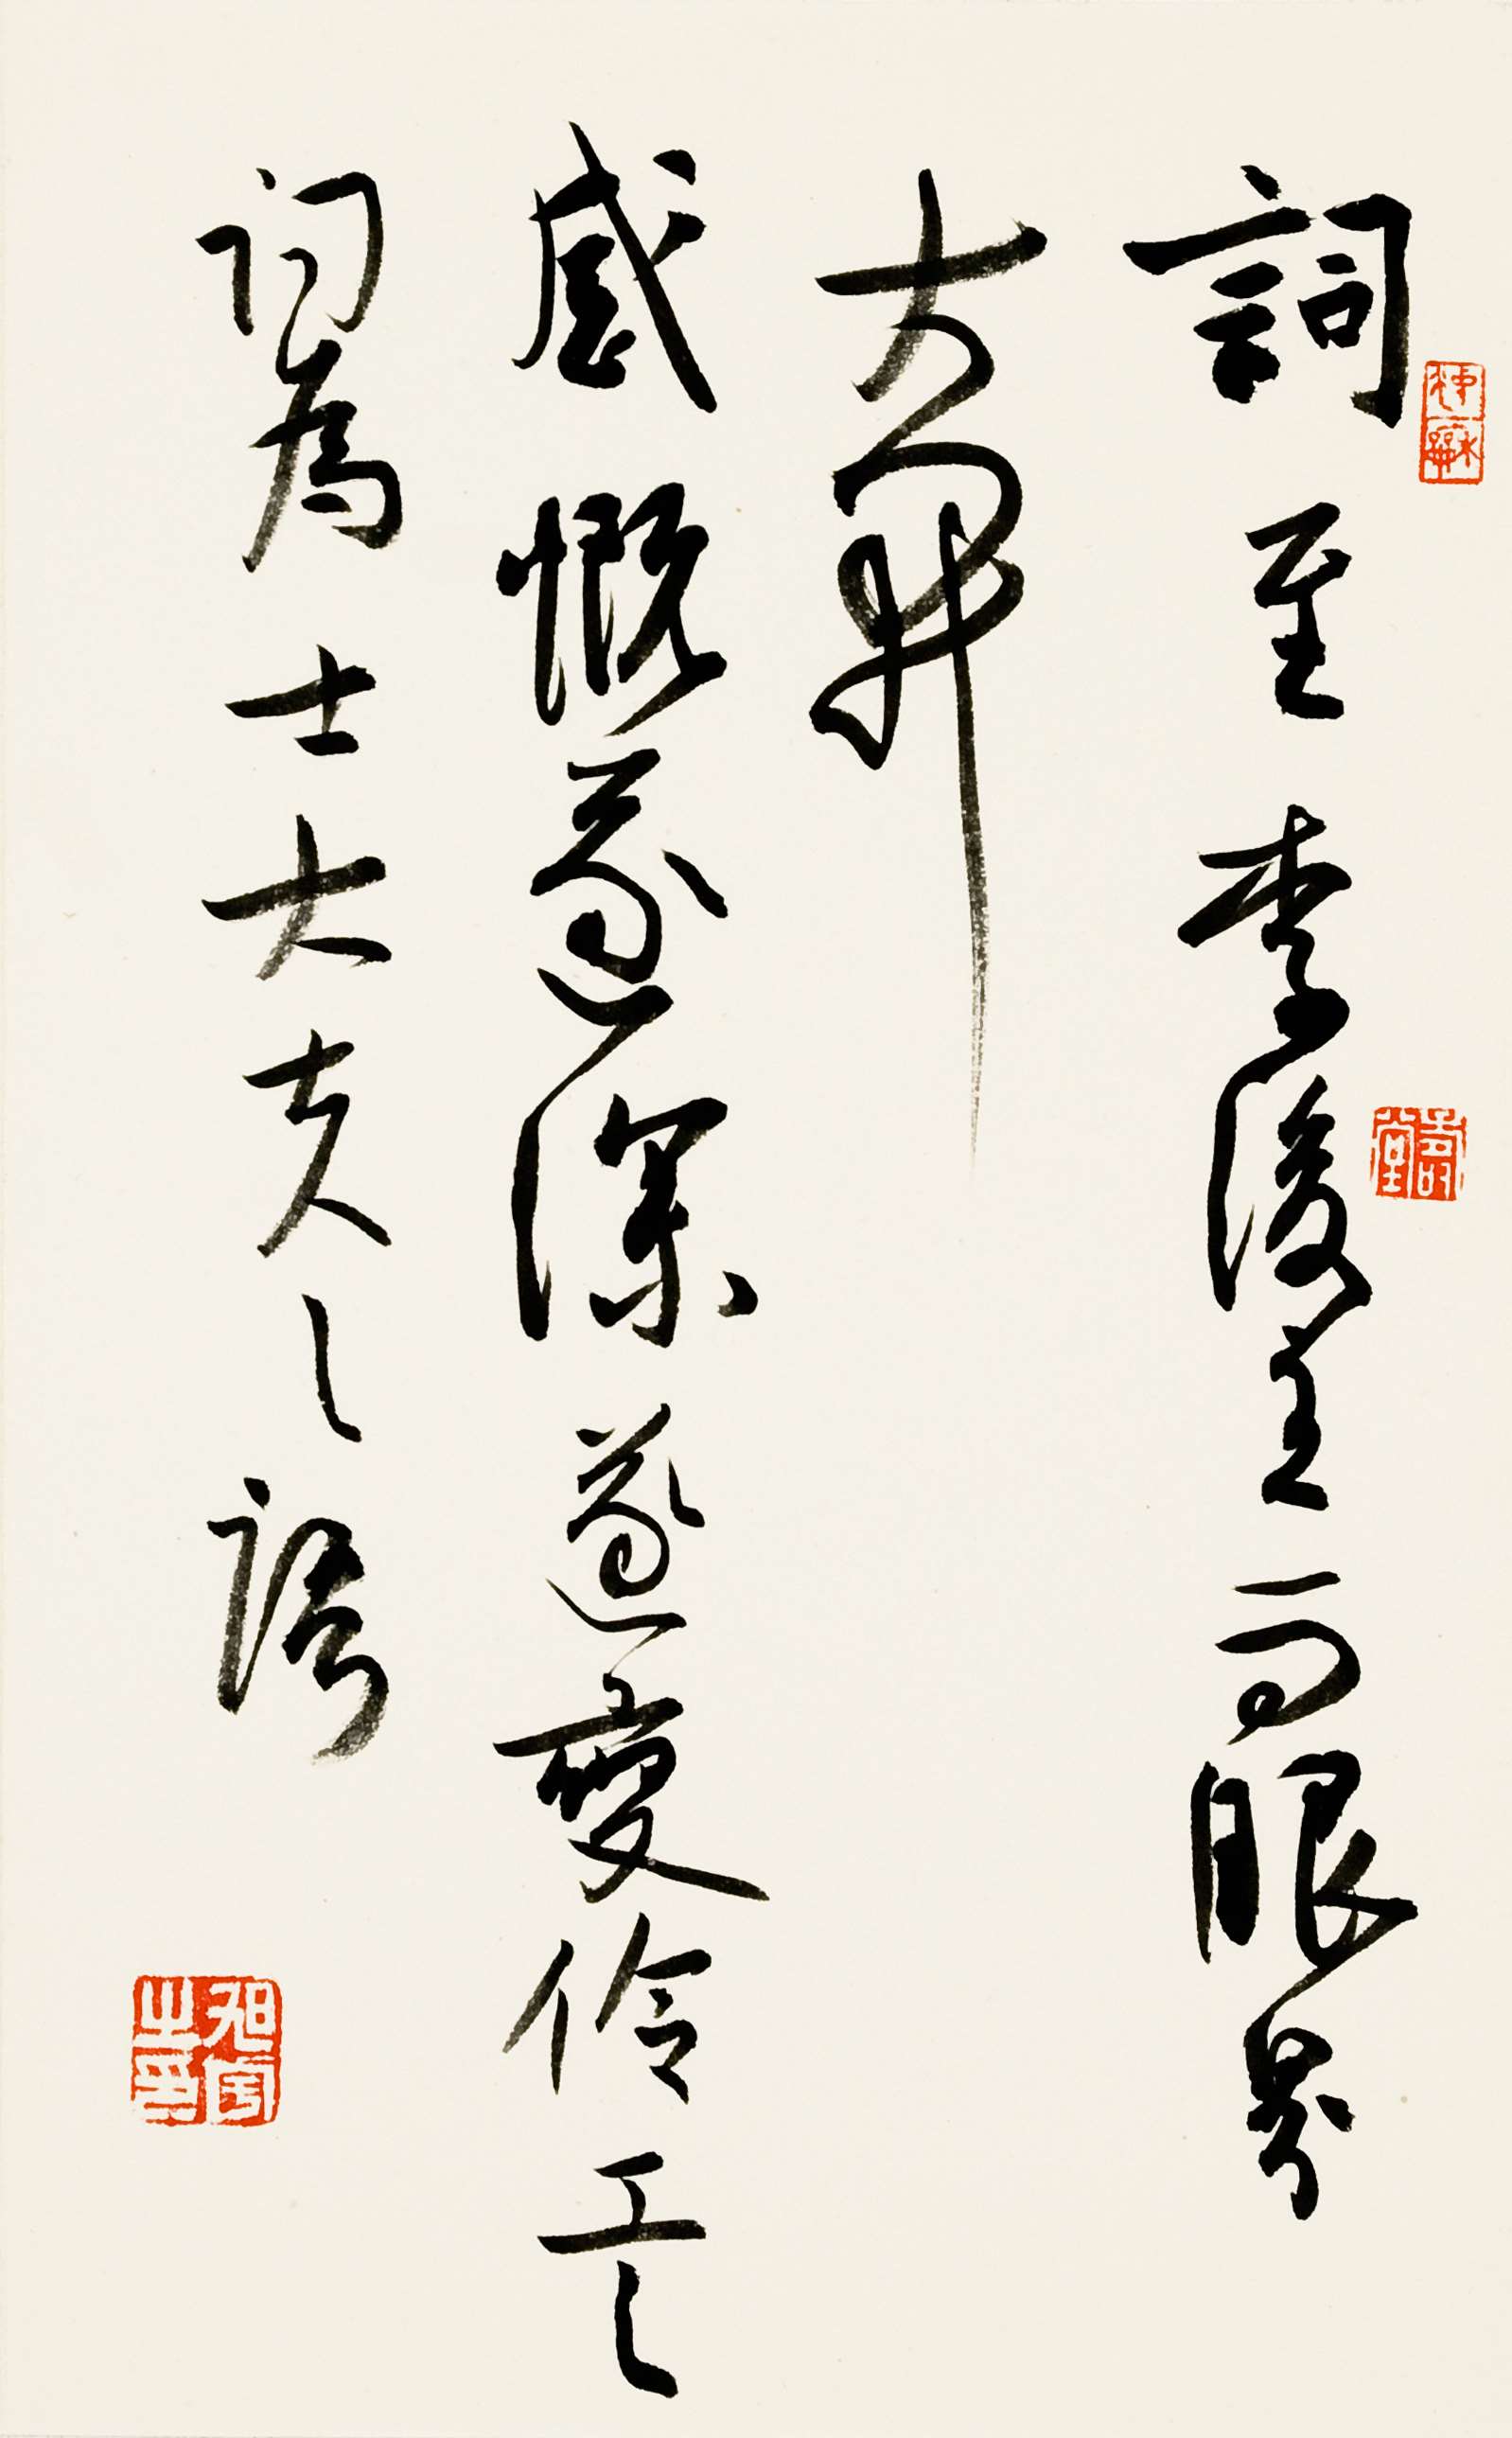 詞至李後主而眼界
大開
感慨遂深遂變伶工之
詞為士大夫之語